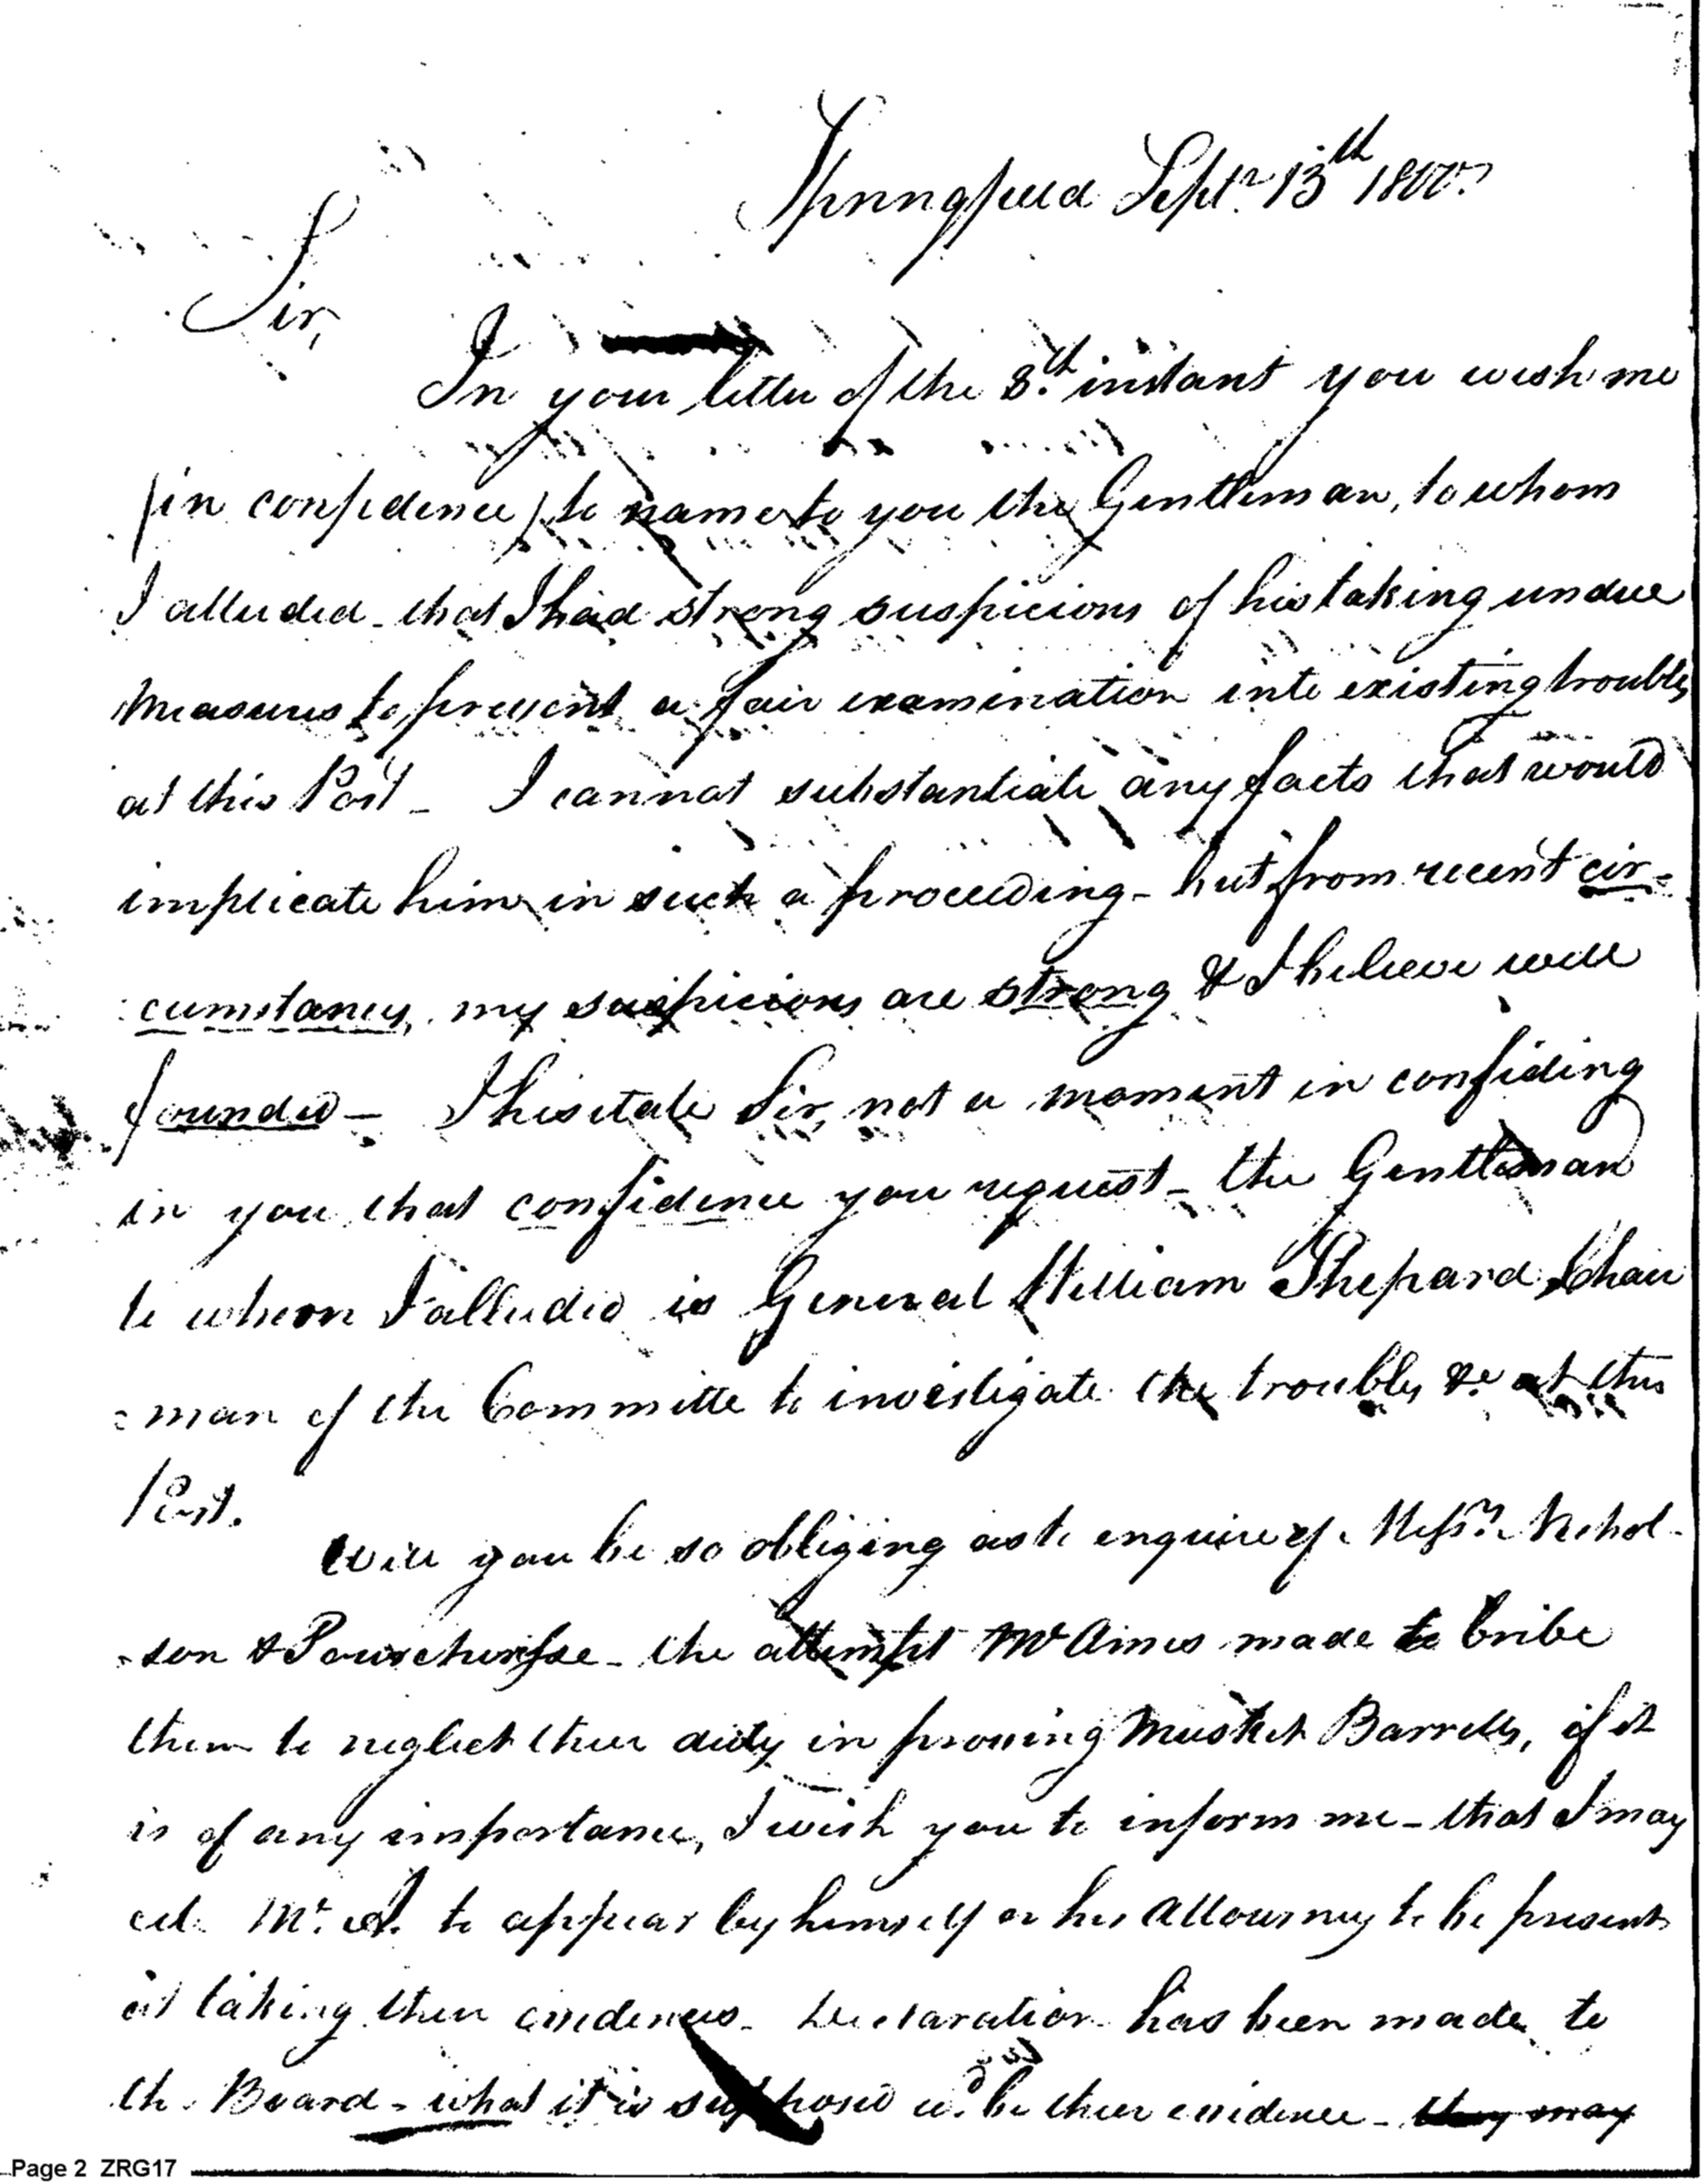 Springfield Septr. 13th 1800.
Sir,
In your letter of the 8.th instant you wish me
(in confidence) to name to you the Gentleman, to whom
I alluded - that I had strong suspicions of his taking undue
measures to prevent a fair examination into existing troubles
at this Post - I cannot substantiate any facts that would
implicate him in such a proceeding - but from recent cir-
cumstances, my suspicions are strong & I believe well
founded - I hesitate Sir, not a moment in confiding
in you that confidence you request - the Gentleman
to whom I alluded is General William Shepard, Chair
=man of the Committe to investigate the troubles &c at this
Post.
Will you be so obliging as to enquire of Messrs. Nichol-
son & the attempt Mr Ames made to bribe
them to neglect their duty in proving Musket Barrells, if it
is of any importance, I wish you to inform me - that I may
cite Mr. A. to appear by himself or his Attourney to be present
at taking their evidences - Declaration has been made to
the Board - what it is supposed wd. be their evidence - they may
Page 2 ZRG17